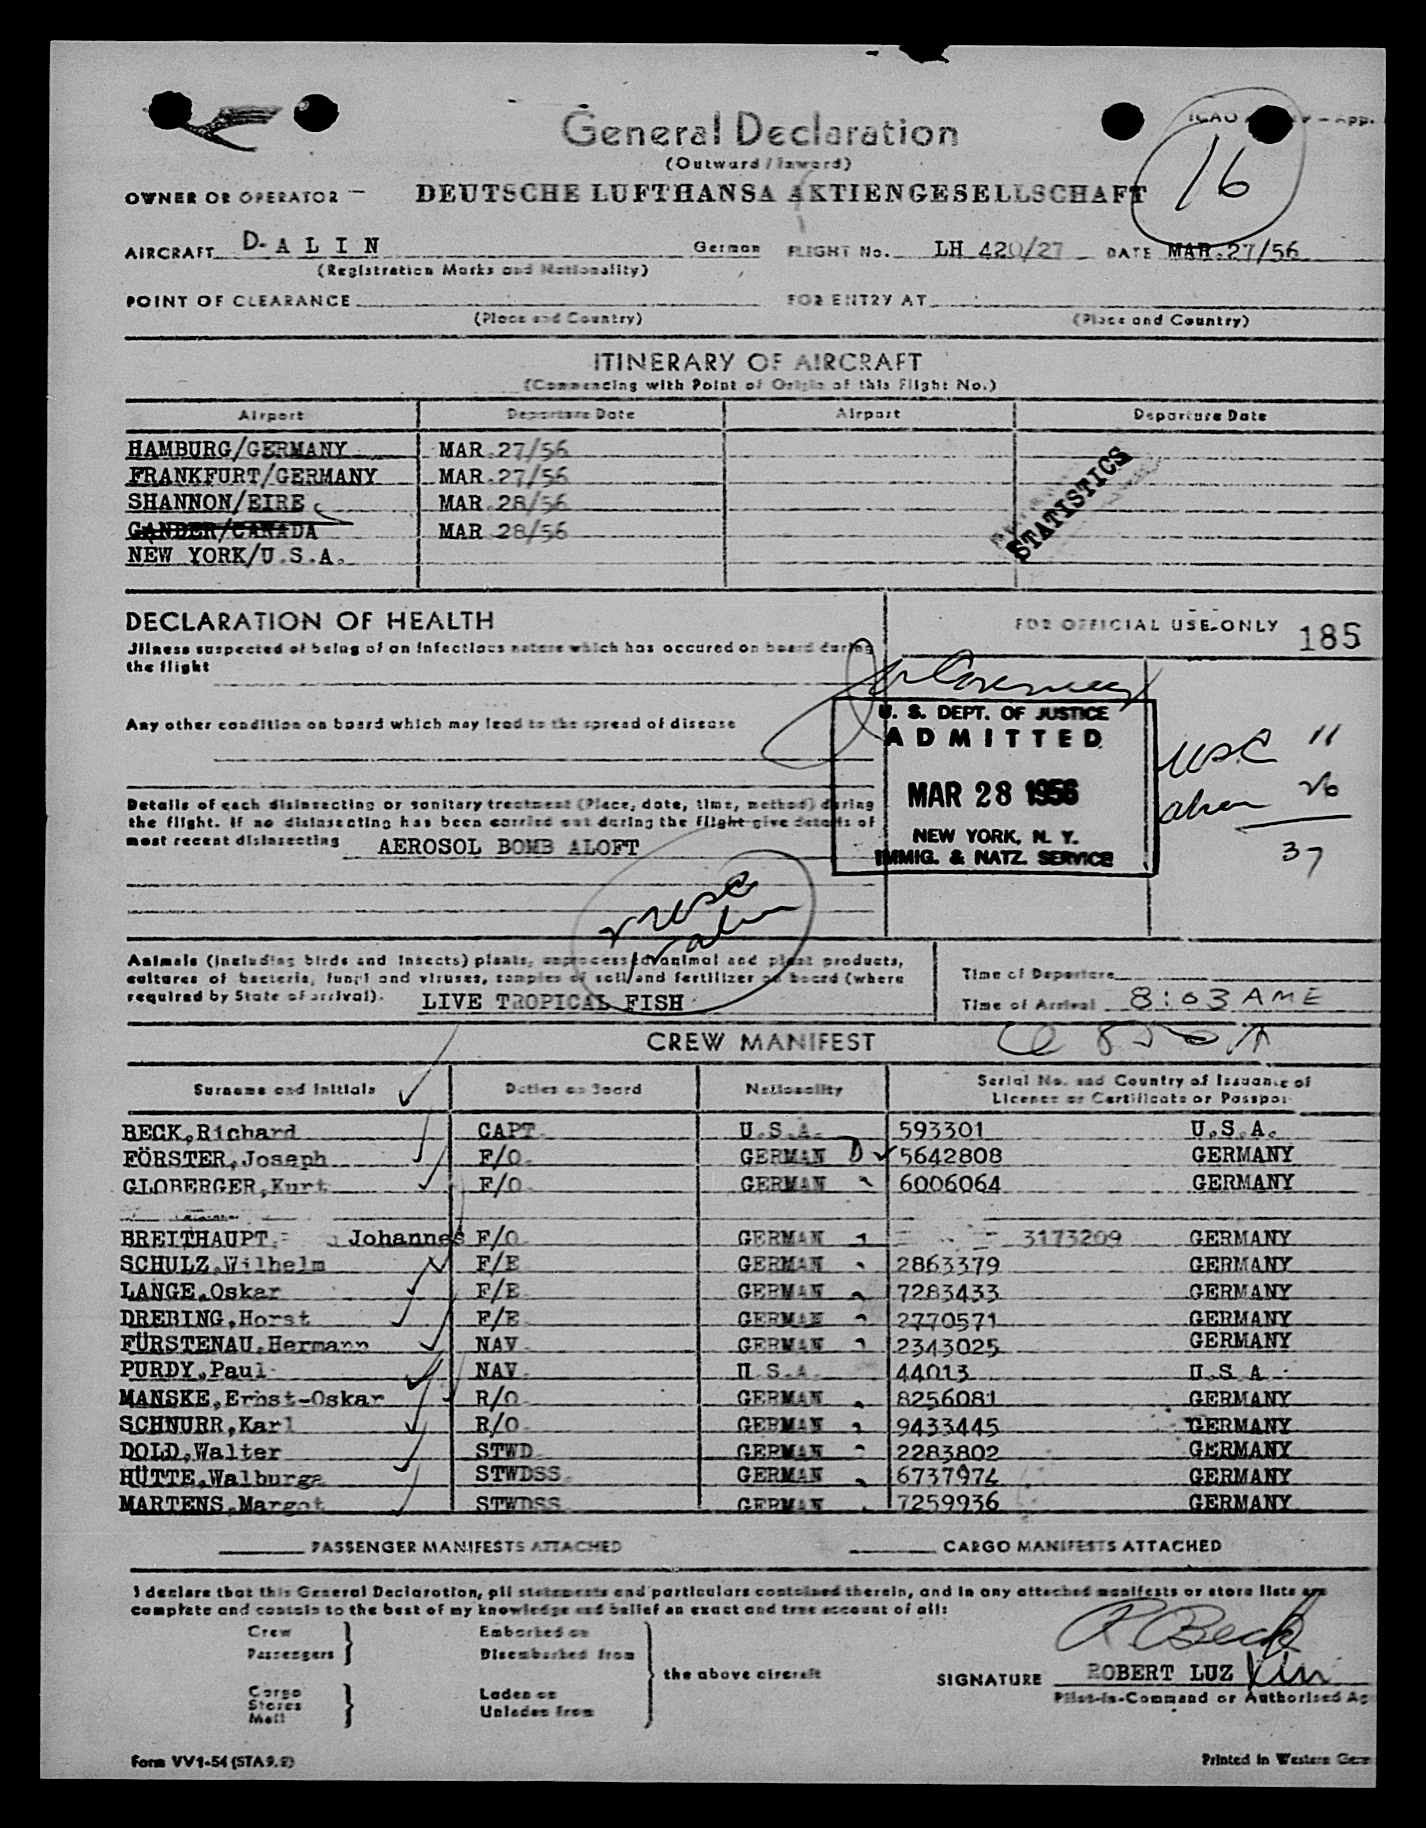 General Declaration
(Outward / Inward)
16
OWNER OR OPERATOR — DEUTSCHE LUFTHANSA AKTIENGESELLSCHAFT
AIRCRAFT D-ALIN German FLIGHT No. LH 420/27 DATE MAR.27/56
(Registration Marks and Nationality)
POINT OF CLEARANCE FOR ENTRY AT
(Place and Country) (Place and Country)
ITINERARY OF AIRCRAFT
(Commencing with Point of Origin of this Flight No.)
Airport Departure Date Airport Departure Date
HAMBURG/GERMANY MAR.27/56
FRANKFURT/GERMANY MAR.27/56
SHANNON/EIRE MAR.28/56
GANDER/CANADA MAR 28/56
NEW YORK/U.S.A.
STATISTICS
DECLARATION OF HEALTH
FOR OFFICIAL USE ONLY 185
Jllness suspected of being of an infectious nature which has occured on board during
the flight
Any other condition on board which may lead to the spread of disease
U. S. DEPT. OF JUSTICE
ADMITTED
MAR 28 1956
NEW YORK, N. Y.
IMMIG. & NATZ. SERVICE
USC 11
alien 26
37
Details of each disinsecting or sanitary treatment (Place, date, time, method) during
the flight. If no disinsecting has been carried out during the flight give details of
most recent disinsecting AEROSOL BOMB ALOFT
Animals (including birds and insects) plants, unprocessed animal and plant products,
cultures of bacteria, fungi and viruses, samples of soil and fertilizer on board (where
required by State of arrival). LIVE TROPICAL FISH
Time of Departure
Time of Arrival 8:03 AME
CREW MANIFEST
Surname and Initials Duties on Board Nationality Serial No. and Country of Issuance of
Licence or Certificate or Passpor
BECK,Richard CAPT. U.S.A. 593301 U.S.A.
FÖRSTER,Joseph F/O. GERMAN D 5642808 GERMANY
GLOBERGER,Kurt F/O. GERMAN 6006064 GERMANY
BREITHAUPT, Johannes F/O GERMAN 3173209 GERMANY
SCHULZ,Wilhelm F/E GERMAN 2863379 GERMANY
LANGE,Oskar F/E GERMAN 7283433 GERMANY
DREBING,Horst F/E GERMAN 2770571 GERMANY
FÜRSTENAU,Hermann NAV. GERMAN 2343025 GERMANY
PURDY,Paul NAV. U.S.A. 44013 U.S.A.
MANSKE,Ernst-Oskar R/O GERMAN 8256081 GERMANY
SCHNURR,Karl R/O GERMAN 9433445 GERMANY
DOLD,Walter STWD GERMAN 2283802 GERMANY
HÜTTE,Walburga STWDSS. GERMAN 6737974 GERMANY
MARTENS,Margot STWDSS GERMAN 7259936 GERMANY
PASSENGER MANIFESTS ATTACHED CARGO MANIFESTS ATTACHED
I declare that this General Declaration, all statements and particulars contained therein, and in any attached manifests or store lists are
complete and contain to the best of my knowledge and belief an exact and true account of all:
Crew Embarked on
Passengers Disembarked from
the above aircraft
Cargo Laden on
Stores
Mail Unladen from
R. Beck
SIGNATURE ROBERT LUZ
Pilot-in-Command or Authorised Ag
Form VV1-54 (STA 9.2) Printed in Western Germ